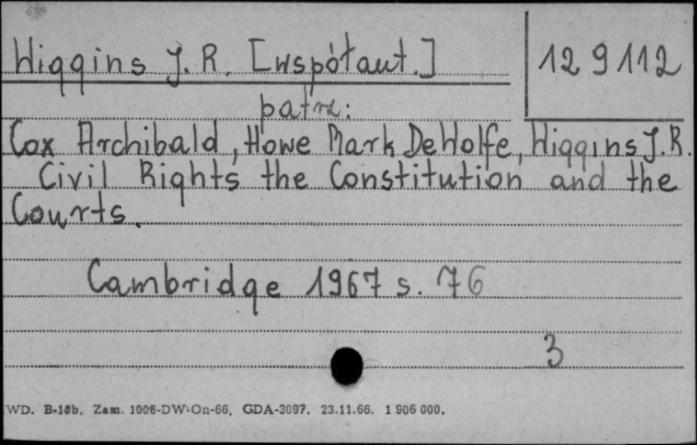 Higgins J. R. [współaut.]
12 9112
patrz:
Cox Archibald, Howe Mark DeWolfe, Higgins J. R.
Civil Rights the Constitution and the
Courts.
Cambridge 1967 s. 76
3
WD. B-18b. Zam. 1006-DW-On-66. GDA-3097. 23.11.66. 1 906 000.